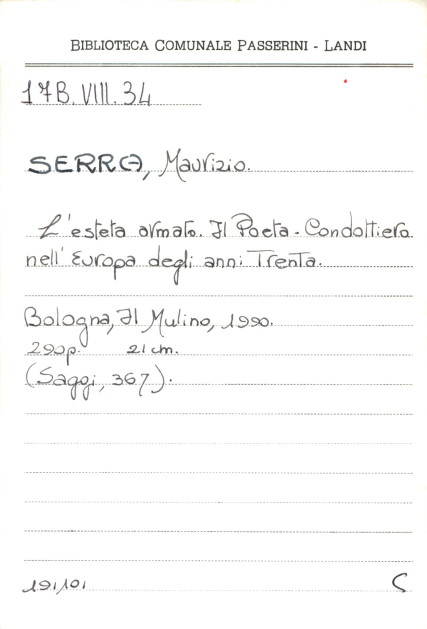 BIBLIOTECA COMUNALE PASSERINI - LANDI
17B.VIII.34
SERRA, Maurizio.
L'esteta armato. Il Poeta-Condottiero
nell'Europa degli anni Trenta.
Bologna, Il Mulino, 1990.
290p. 21 cm.
(Saggi, 367).
191101 C